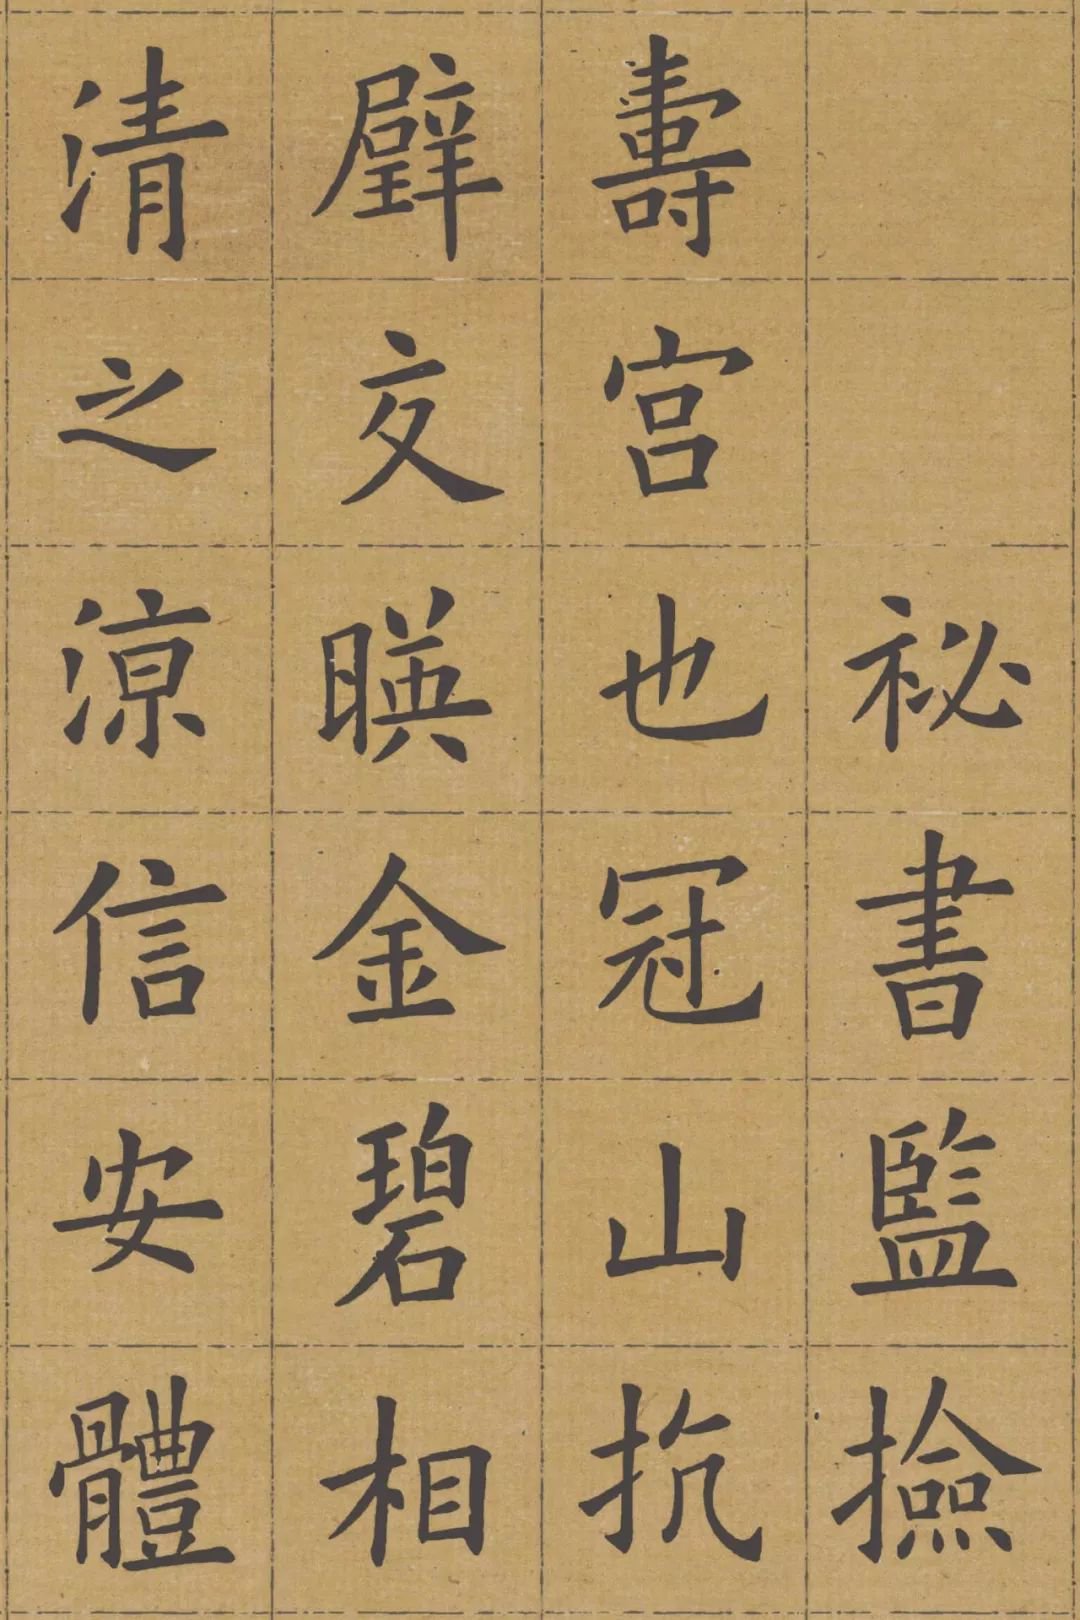 祕書監撿
壽宮也冠山抗
璧交暎金碧相
清之涼信安體